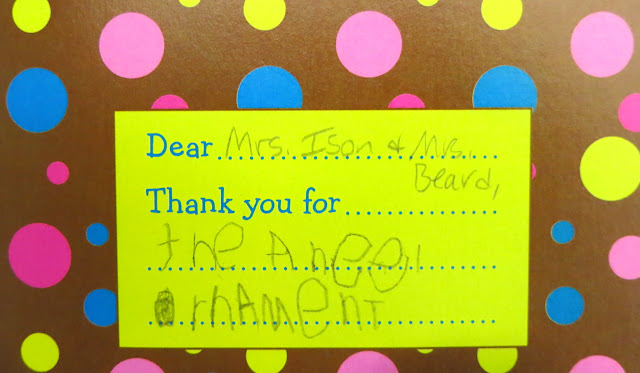 Dear Mrs. Ison & Mrs.
Beard,
Thank you for
the Angel
ornAmenT